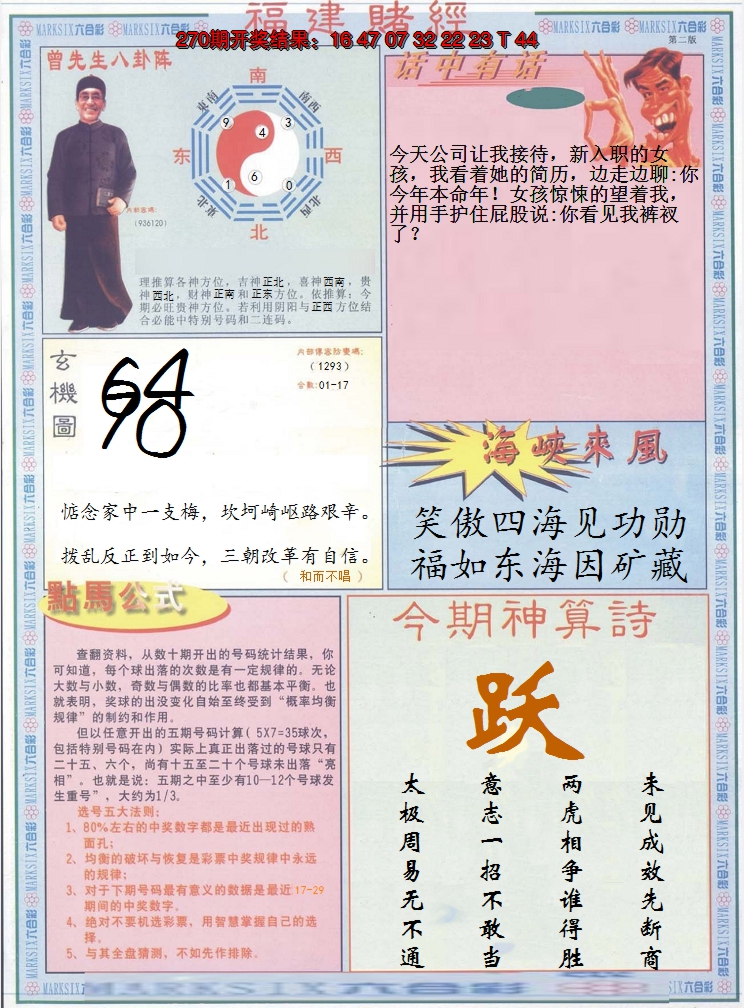 福建賭經
270期开奖结果：16 47 07 32 22 23 T 44
MARKSIX六合彩
第二版
曾先生八卦阵
南
东南
南西
9
4
3
东
西
1
6
0
东北
西北
北
内部密碼:
（936120）
理推算各神方位，吉神正北，喜神西南，贵
神西北，财神正南和正东方位。依推算：今
期必旺贵神方位。若利用阴阳与正西方位结
合必能中特别号码和二连码。
话中有话
今天公司让我接待，新入职的女
孩，我看着她的简历，边走边聊:你
今年本命年！女孩惊悚的望着我，
并用手护住屁股说:你看见我裤衩
了？
玄機圖
64
90
内部傳密防變碼:
（1293）
合數:01-17
惦念家中一支梅，坎坷崎岖路艰辛。
拨乱反正到如今，三朝改革有自信。
（ 和而不唱 ）
海峡來風
笑傲四海见功勋
福如东海因矿藏
點馬公式
查翻资料，从数十期开出的号码统计结果，你
可知道，每个球出落的次数是有一定规律的。无论
大数与小数，奇数与偶数的比率也都基本平衡。也
就表明，奖球的出没变化自始至终受到“概率均衡
规律”的制约和作用。
但以任意开出的五期号码计算( 5X7=35球次，
包括特别号码在内) 实际上真正出落过的号球只有
二十五、六个，尚有十五至二十个号球未出落“亮
相”。也就是说：五期之中至少有10—12个号球发
生重号”，大约为1/3。
选号五大法则：
1、80%左右的中奖数字都是最近出现过的熟
面孔；
2、均衡的破坏与恢复是彩票中奖规律中永远
的规律；
3、对于下期号码最有意义的数据是最近17-29
期间的中奖数字。
4、绝对不要机选彩票，用智慧掌握自己的选
择。
5、与其全盘猜测，不如先作排除。
今期神算詩
跃
太极周易无不通
意志一招不敢当
两虎相争谁得胜
未见成效先断商